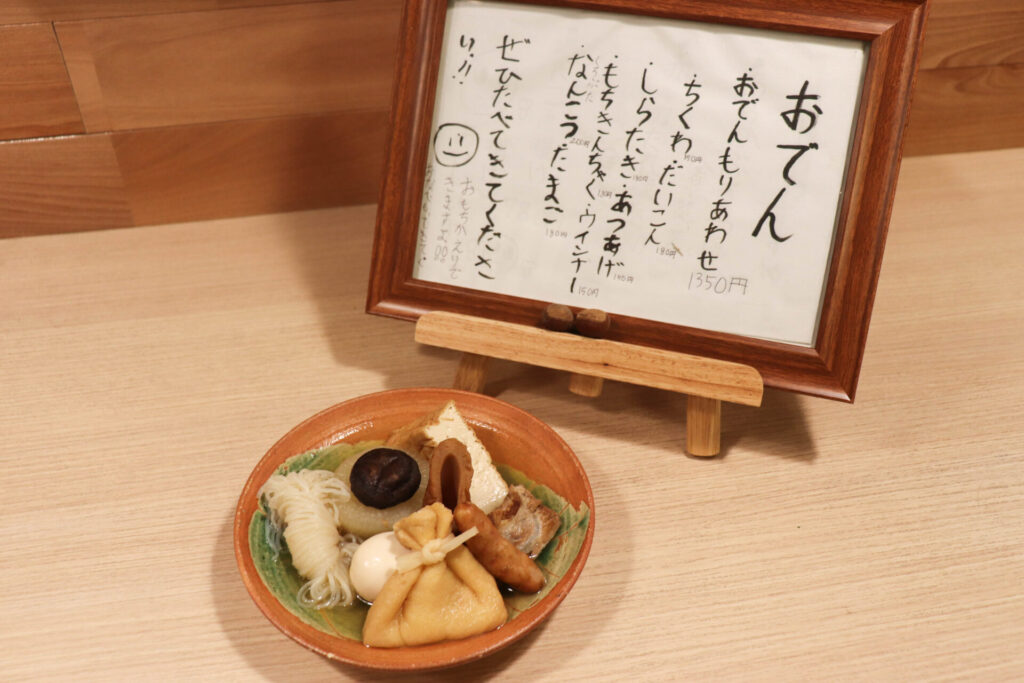 おでん
・おでんもりあわせ
1350円
・ちくわ 150円 ・だいこん 180円
・しらたき ・あつあげ
・もちきんちゃく ・ウインナー 150円
・なんこつ 200円 ・たまご
ぜひたべてきてくださ
い!!
おもちかえりで
きますよ